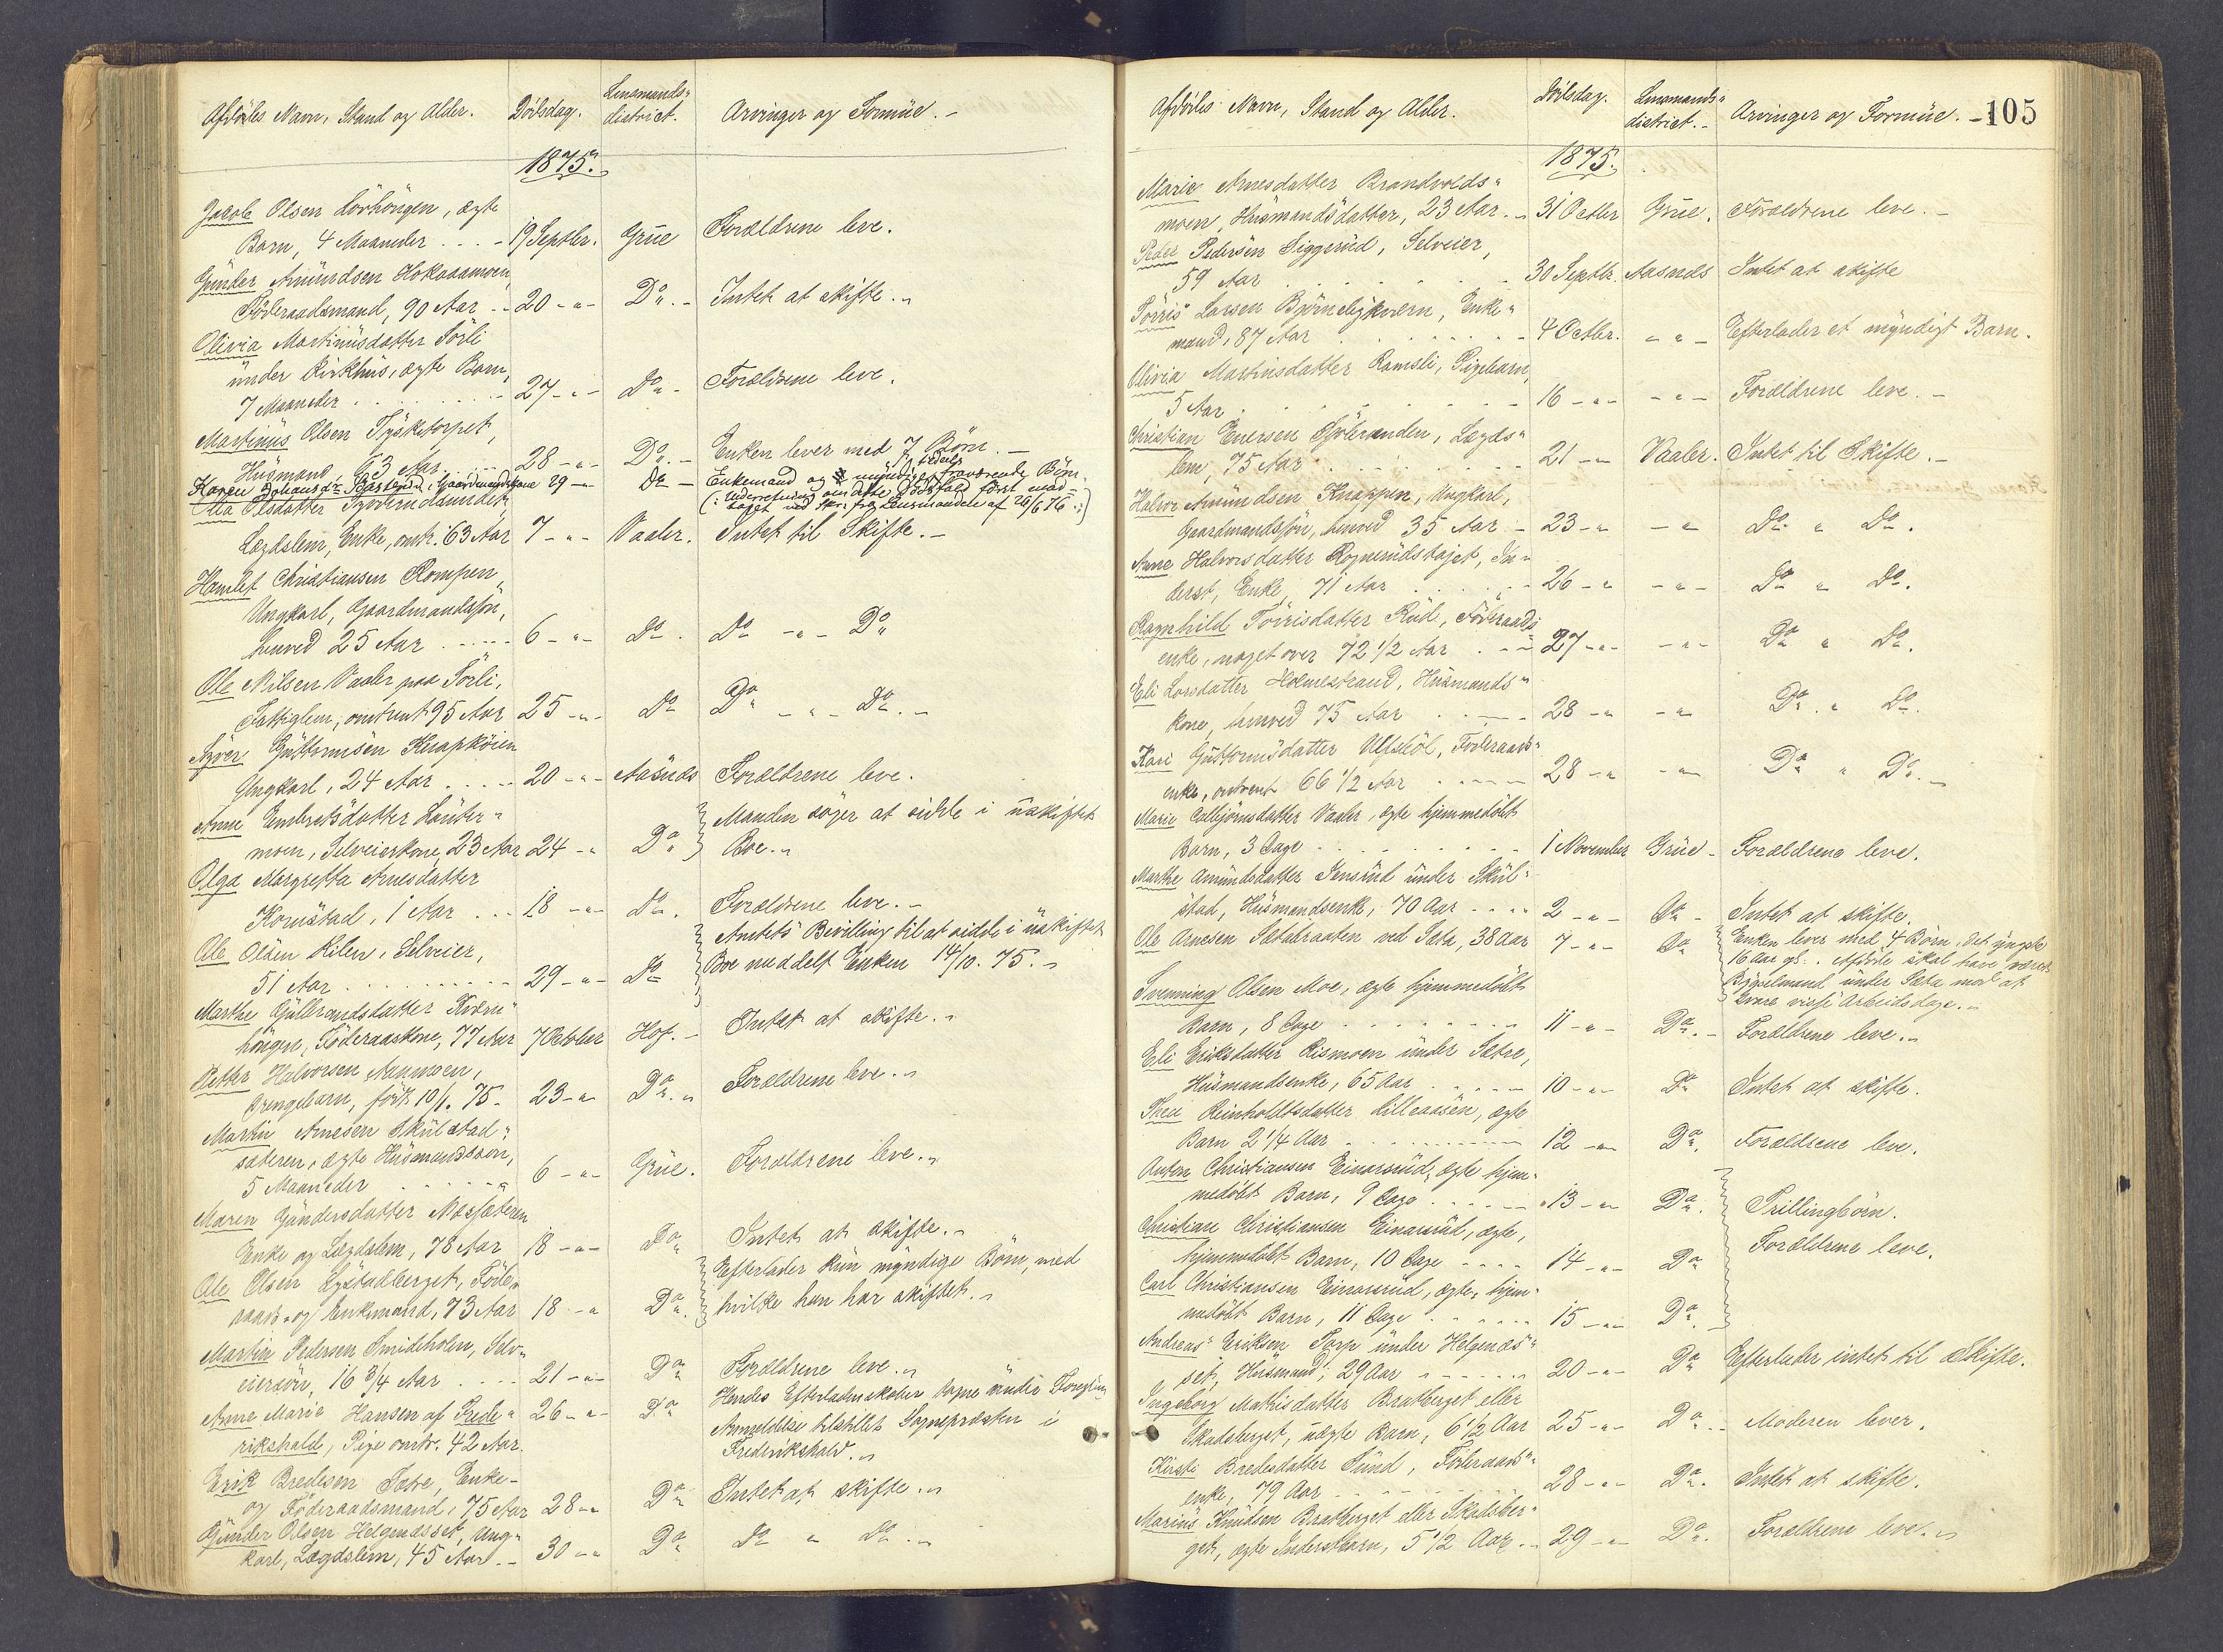 Afdödes Navn, Stand og Alder. Dödsdag. Lensmands-
district. Arvinger og Formue.
1875.
Jacob Olsen Lövhöugen, ægte
Barn, 4 Maaneder . . . 19 Septbr. Grue Forældrene leve.
Gunder Amundsen Hokaasmoen,
Föderaadsmand, 90 Aar . . 20 -"- Do. Intet at skifte.
Olivia Martinusdatter Törli
under Kirkhus, ægte Barn,
7 Maaneder . . . 27 -"- Do. Forældrene leve.
Martinus Olsen Tysketorpet,
Husmand, 63 Aar . . 28 -"- Do. Enken lever med 7 Börn.
Karen Johansdr. , Gaardmandskone 29 -"- Do Enkemand og myndige fraværende Börn.
(: Underretning om dette Dödsfald först mod-
taget ved Skr. fra Lensmanden af 26/6 76 :)
Olsdatter
Lægdslem, Enke, omtr. 63 Aar 7 -"- Vaaler. Intet til Skifte.
Hamlet Christiansen Rompen,
Ungkarl, Gaardmandssön,
henved 25 Aar . . . 6 -"- Do. Do -"- Do
Ole Nilsen Vaaler paa Törli,
Fattiglem, omtrent 95 Aar 25 -"- Do Do -"- Do.
Syver Guttormsen Knapköien
Ungkarl, 24 Aar . . . 20 -"- Aasnæs Forældrene leve.
Anne Embretsdatter Lauter-
moen, Selveierkone, 23 Aar 24 -"- Do Manden söger at sidde i uskiftet
Boe.
Olga Margretta Arnesdatter
Kornstad, 1 Aar . . . 18 -"- Do. Forældrene leve.
Ole Olsen Kilen, Selveier,
51 Aar . . . 29 -"- Do Amtets Bevilling til at sidde i uskiftet
Boe meddelt Enken 14/10. 75.
Marthe Gulbrandsdatter Kværn-
höugen, Föderaadskone, 77 Aar 7 October Hof. Intet at skifte.
Petter Halvorsen Aamoen,
Drengebarn, födt 10/1. 75. 23 -"- Do. Forældrene leve.
Martin Arnesen Skulstad-
sæteren, ægte Husmandssön,
5 Maaneder . . . 6 -"- Grue. Forældrene leve.
Maren Gundersdatter Næssæteren
Enke og Lægdslem, 78 Aar 18 -"- Do Intet at skifte.
Ole Olsen Lystadberget, Föde-
raads- og Enkemand, 73 Aar 18 -"- Do. Efterlader kun myndige Börn, med
hvilke han har skiftet.
Martin Pedersen Smideholen, Selv-
eiersön, 16 3/4 Aar . . . 21 -"- Do Forældrene leve.
Anne Marie Hansen af Frede-
rikshald, Pige omtr. 42 Aar. 26 -"- Do Hendes Efterladenskaber tagne under Foregting
Anmeldelse tilstillet Sognepræsten i
Frederikshald.
Erik Bredesen Sætre, Enke-
og Föderaadsmand, 75 Aar 28 -"- Do Intet at skifte.
Gunder Olsen Helgenæsset, Ung-
karl, Lægdslem, 45 Aar 30 -"- Do Do " Do.
Afdödes Navn, Stand og Alder. Dödsdag. Lensmands-
district. Arvinger og Formue. 105
1875.
Marie Arnesdatter Brandvolds-
moen, Husmandsdatter, 23 Aar. 31 Octbr Grue. Forældrene leve.
Peder Pedersen Siggerud, Selveier,
59 Aar . . . 30 Septbr. Aasnæs Intet at skifte
Törris Larsen Björneligkværn, Enke-
mand, 87 Aar . . . 4 Octbr. -"- Efterlader et myndigt Barn.
Olivia Martinsdatter Ramsli, Pigebarn,
5 Aar . . . 16 -"- -"- Forældrene leve.
Christian Enersen , Lægds-
lem, 75 Aar . . . 21 -"- Vaaler. Intet til Skifte.
Halvor Amundsen Knappen, Ungkarl,
Gaardmandssön, henved 35 Aar 23 -"- -"- Do. " Do.
Anne Halvorsdatter Rognerudstajet, In-
derst, Enke, 71 Aar . . . 26 -"- -"- Do " Do.
Ragnhild Törrisdatter Rud, Föderaads-
enke, noget over 72 1/2 Aar . . 27 -"- -"- Do " Do.
Eli Larsdatter Holmestrand, Husmands-
kone, henved 75 Aar . . . 28 -"- -"- Do. " Do.
Kari Guttormsdatter Ulfsböl, Föderaads-
enke, omtrent 66 1/2 Aar . . . 28 -"- -"- Do " Do.
Marie Callbjörnsdatter Vaaler, ægte hjemmedöbt
Barn, 3 Dage . . . 1 November Grue Forældrene leve.
Marthe Amundsdatter Jensrud under Skul-
stad, Husmandsenke, 70 Aar . . . 2 -"- Do Intet at skifte.
Ole Arnesen Sætabraaten ved Sæta, 38 Aar 7 -"- Do Enken lever med 4 Börn, det yngste
16 Aar gl. Afdöde skal have været
Bygselmand under Sæta mod at
svare visse Arbeidsdage.
Svenning Olsen Moe, ægte hjemmedöbt
Barn, 8 Dage . . . 11 -"- Do. Forældrene leve.
Eli Eriksdatter Rismoen under Sætre,
Husmandsenke, 65 Aar . . . 10 -"- Do Intet at skifte.
Thea Reinholdtsdatter Lilleaasen, ægte
Barn 2 1/4 Aar . . . 12 -"- Do. Forældrene leve.
Anton Christiansen Einarsrud, ægte hjem-
medöbt Barn, 9 Dage . . . 13 -"- Do. Trillingbörn.
Christian Christiansen Einarsrud, ægte,
hjemmedöbt Barn, 10 Dage . . . 14 -"- Do Forældrene leve.
Carl Christiansen Einarsrud, ægte, hjem-
medöbt Barn, 11 Dage . . . 15 -"- Do.
Andreas Eriksen Torp under Helgenæs-
set, Husmand, 29 Aar . . . 20 -"- Do Efterlader intet til Skifte.
Ingeborg Mathisdatter Bratberget eller
Skadsberget, uægte Barn, 6 1/2 Aar 25 -"- Do. Moderen lever.
Kirsti Bredesdatter Sund, Föderaads-
enke, 79 Aar . . . 28 -"- Do. Intet at skifte.
Marius Knudsen Bratberget eller Skadsber-
get, ægte Inderstbarn, 5 1/2 Aar . . 29 -"- Do. Forældrene leve.